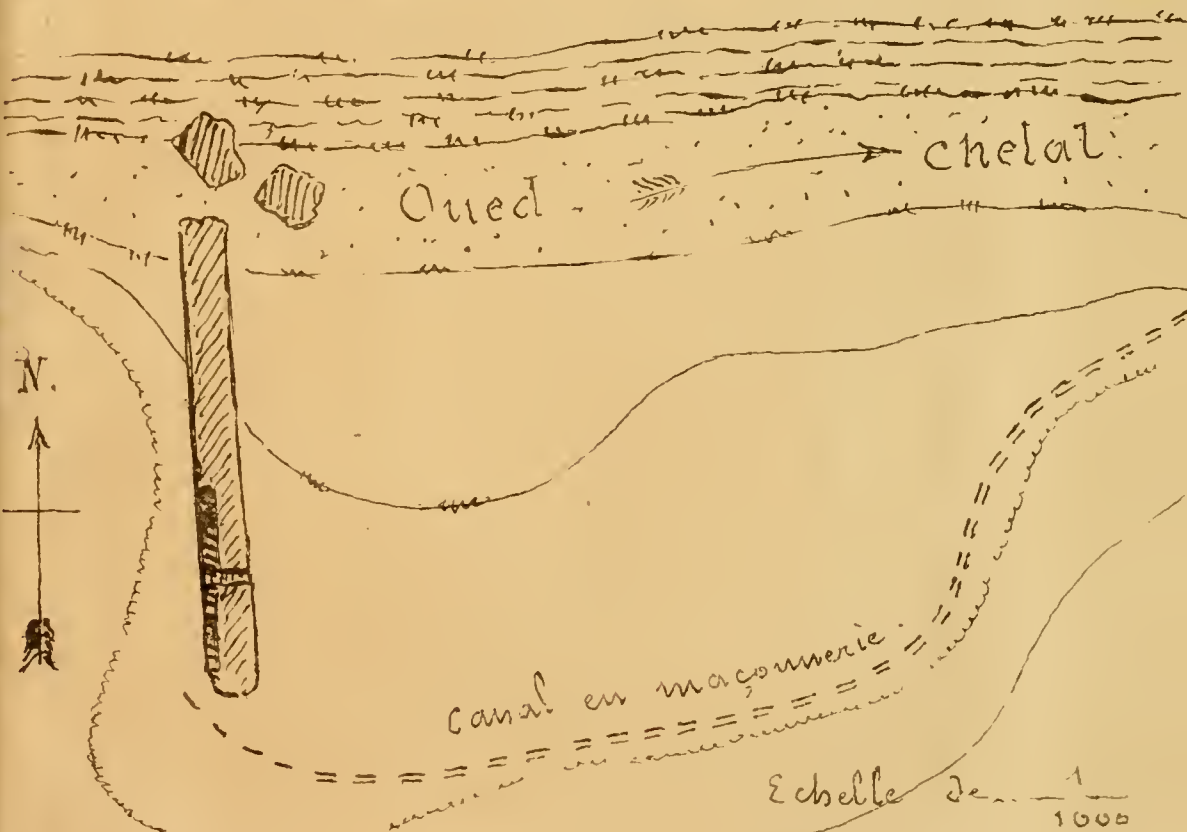 Oued chelal
N.
canal en maçonnerie.
Echelle de... 1/1000